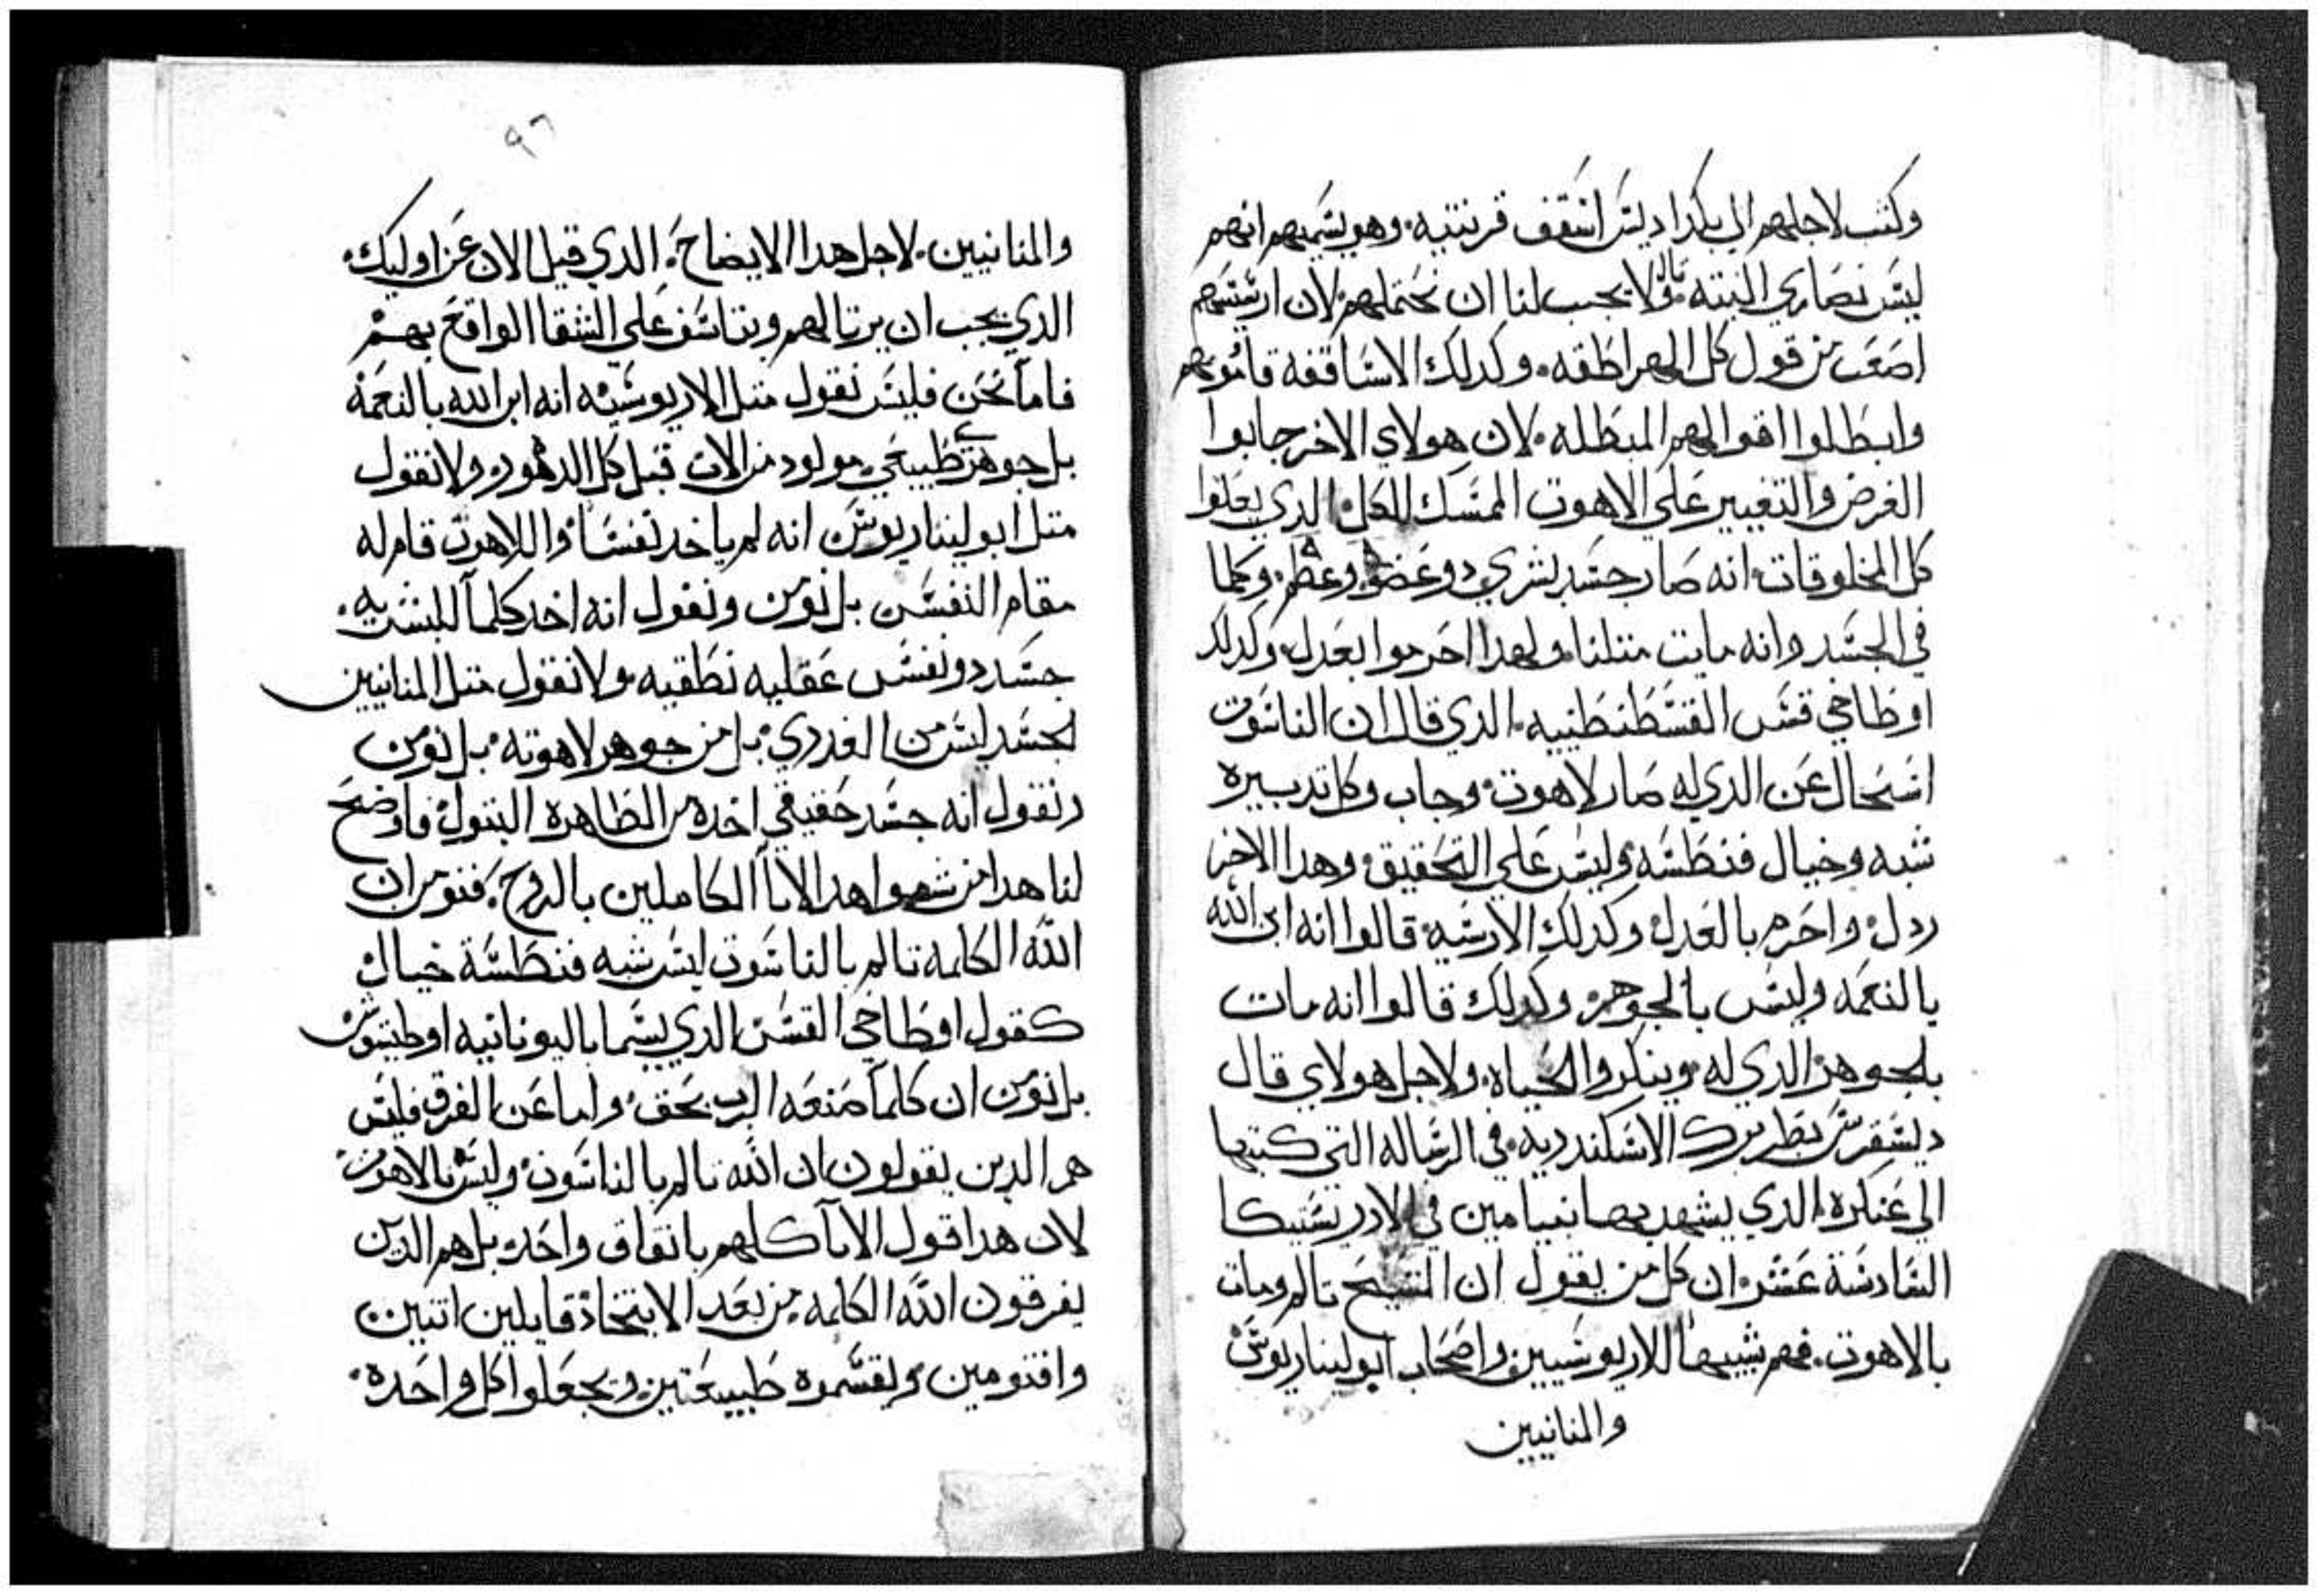 وكتب لاجلهم الي بكداديس اسقف قرنتيه. وهو يسميهم انهم
ليس نصاري البته. وقال لا يجب لنا ان نحتملهم. لان ارسيسهم
اصعب من قول كل الهراطقه. وكدلك الاساقفه قاموهم
وابطلوا اقوالهم المبطله. لان هولاي الاخر جابوا
الغرض والتغيير علي الاهوت الممسك الكل الدي يعلوا
كل المخلوقات. انه صار جسد بشري دو عضو وعظم. وكلما
في الجسد وانه مايت متلنا. ولهدا احرموا بعدل. وكدلك
اوطاخي قس القسطنطينيه. الدي قال ان الناسوت
استحال عن الدي له صار لاهوت. وجاب وكل تدبيره
شبه وخيال فنطسه وليس علي التحقيق. وهدا الاخر
ردل واحرم بالعدل. وكدلك الارسيه قالوا انه ابن الله
بالنعمه وليس بالجوهر. وكدلك قالوا انه مات
بالجوهر الدي له. وينكروا الحياه. ولاجل هولاي قال
ديسقرس بطريرك الاسكندريه. في الرساله التي كتبها
الي عنكره الدي يشهد بها نعيامين في الارديستيكا
السادسة عشر. ان كل من يقول ان المسيح تالم ومات
بالاهوت. فهم شبيها للاريوسيين واصحاب ابوليناريوس
والمنانيين
٩٦
والمنانيين. لاجل هدا الايضاح. الدي قيل الان عن اوليك.
الدي يجب ان يرتا لهم ويتاسف علي الشقا الواقع بهم
فاما نحن فليس نقول متل الاريوسيه انه ابن الله بالنعمه
بل جوهري طبيعي مولود من الاب قبل كل الدهور. ولا نقول
متل ابوليناريوس انه لم ياخد نفسا واللاهوت قام له
مقام النفس بل نومن ونقول انه اخد كلما للبشريه.
جسد دو نفس عقليه نطقيه ولا نقول متل المنانيين
لجسد ليس من العدري. بل من جوهر لاهوته. بل نومن
ونقول انه جسد حقيقي اخده من الطاهره البتول فاوضح
لنا هدا من شواهد الابآ الكاملين بالروح. فنومن ان
الله الكلمه تالم بالناسوت ليس شبه فنطسة خيال
كقول اوطاخي القس الدي يسما باليونانيه اوطيسوس
بل نومن ان كلما صنعه الرب بحق. واما عن الفرق فليس
هم الدين يقولون ان الله تالم بالناسوت. وليس بالاهوت
لان هدا قول الابآ كلهم باتفاق واحد. بل هم الدين
يفرقون الله الكلمه من بعد الايتحاد قايلين اتنين
واقنومين. ويقسموه طبيعتين. ويجعلوا كل واحده.